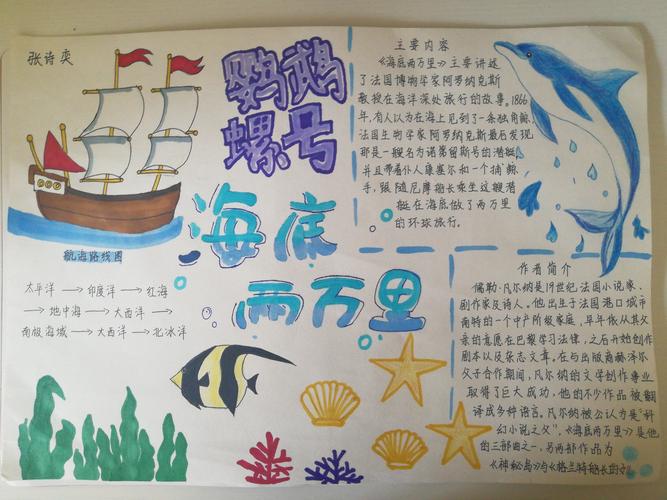 张诗奕
鹦鹉
螺号
海底
两万里
航海路线图
太平洋→印度洋→红海
→地中海→大西洋→
南极海域→大西洋→北冰洋
主要内容
《海底两万里》主要讲述
了法国博物学家阿罗纳克斯
教授在海洋深处旅行的故事。1866
年,有人以为在海上见到了一条独角鲸,
法国生物学家阿罗纳克斯最后发现
那是一艘名为诺第留斯号的潜艇,
并且带着仆人康塞尔和一个捕鲸
手,跟随尼摩船长乘坐这艘潜
艇在海底做了两万里
的环球旅行。
作者简介
儒勒·凡尔纳是19世纪法国小说家、
剧作家及诗人。他出生于法国港口城市
南特的一个中产阶级家庭,早年依从其父
亲的意愿在巴黎学习法律,之后开始创作
剧本以及杂志文章。在与出版商赫泽尔
父子合作期间,凡尔纳的文学创作事业
取得了巨大成功,他的不少作品被翻
译成多种语言。凡尔纳被公认为是“科
幻小说之父”。《海底两万里》是他
的三部曲之一,另两部作品为
《神秘岛》与《格兰特船长的